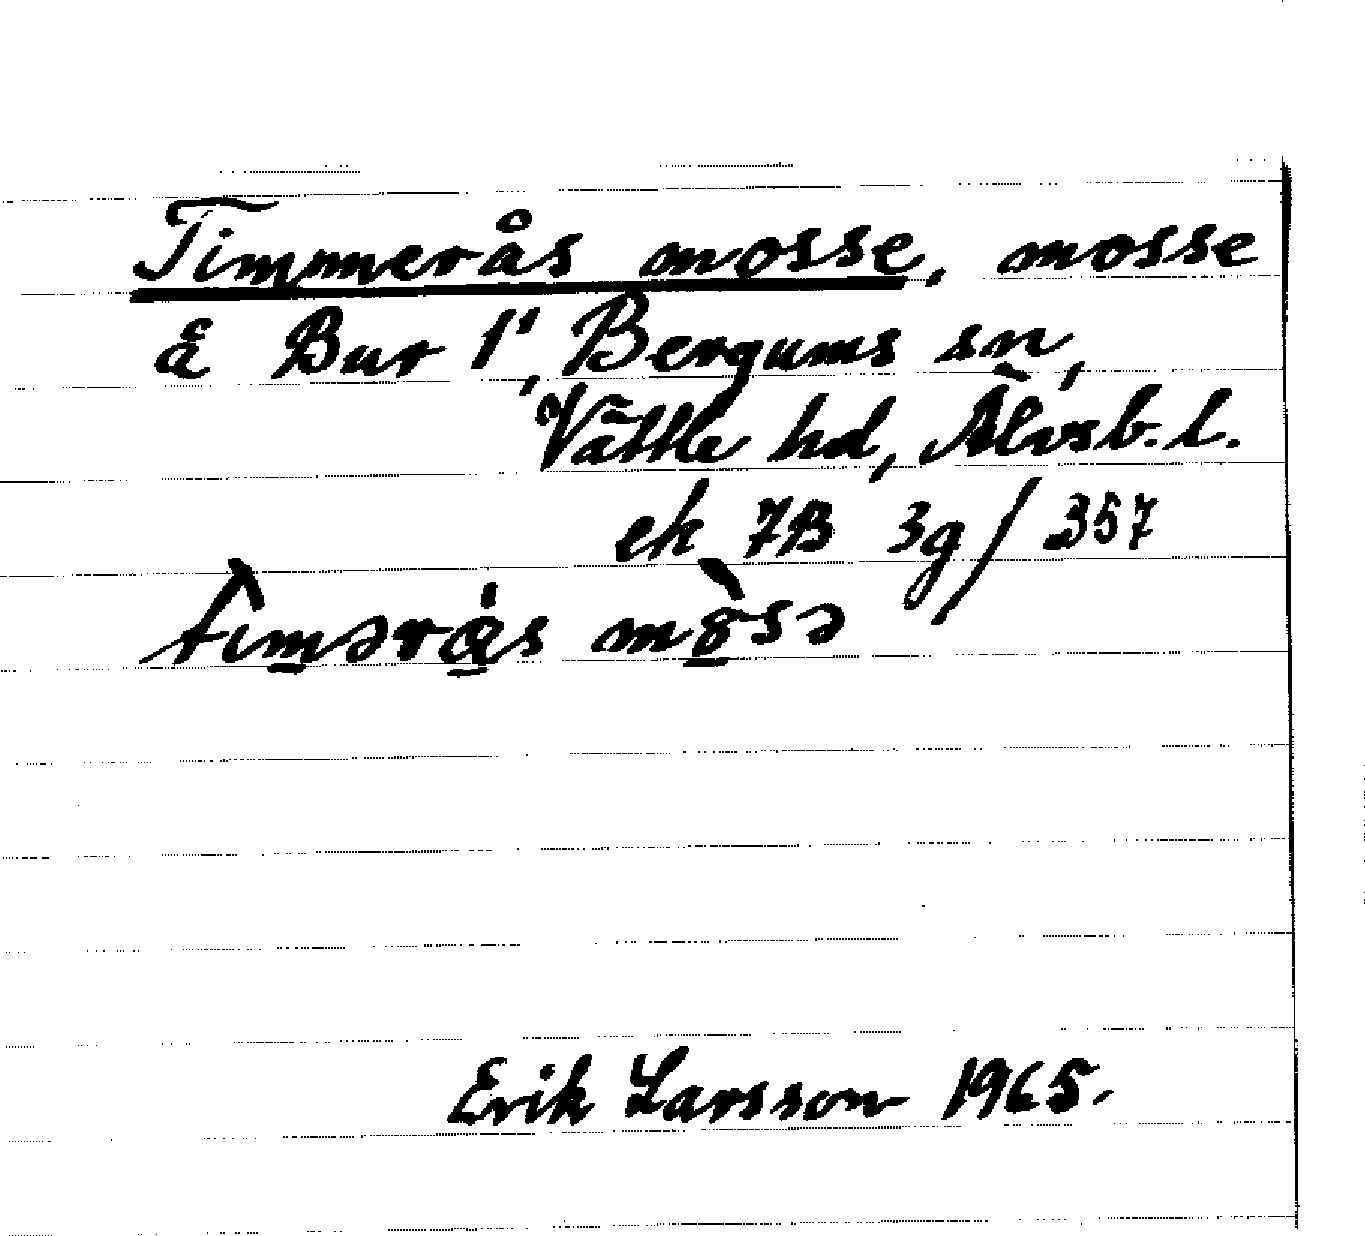 Timmerås mosse, mosse
å Bur 1⁴, Bergums sn,
Vättle hd, Älvsb. l.
ek 7B 3g/357
tìm̲ərá̲s mò̲sə
Erik Larsson 1965.